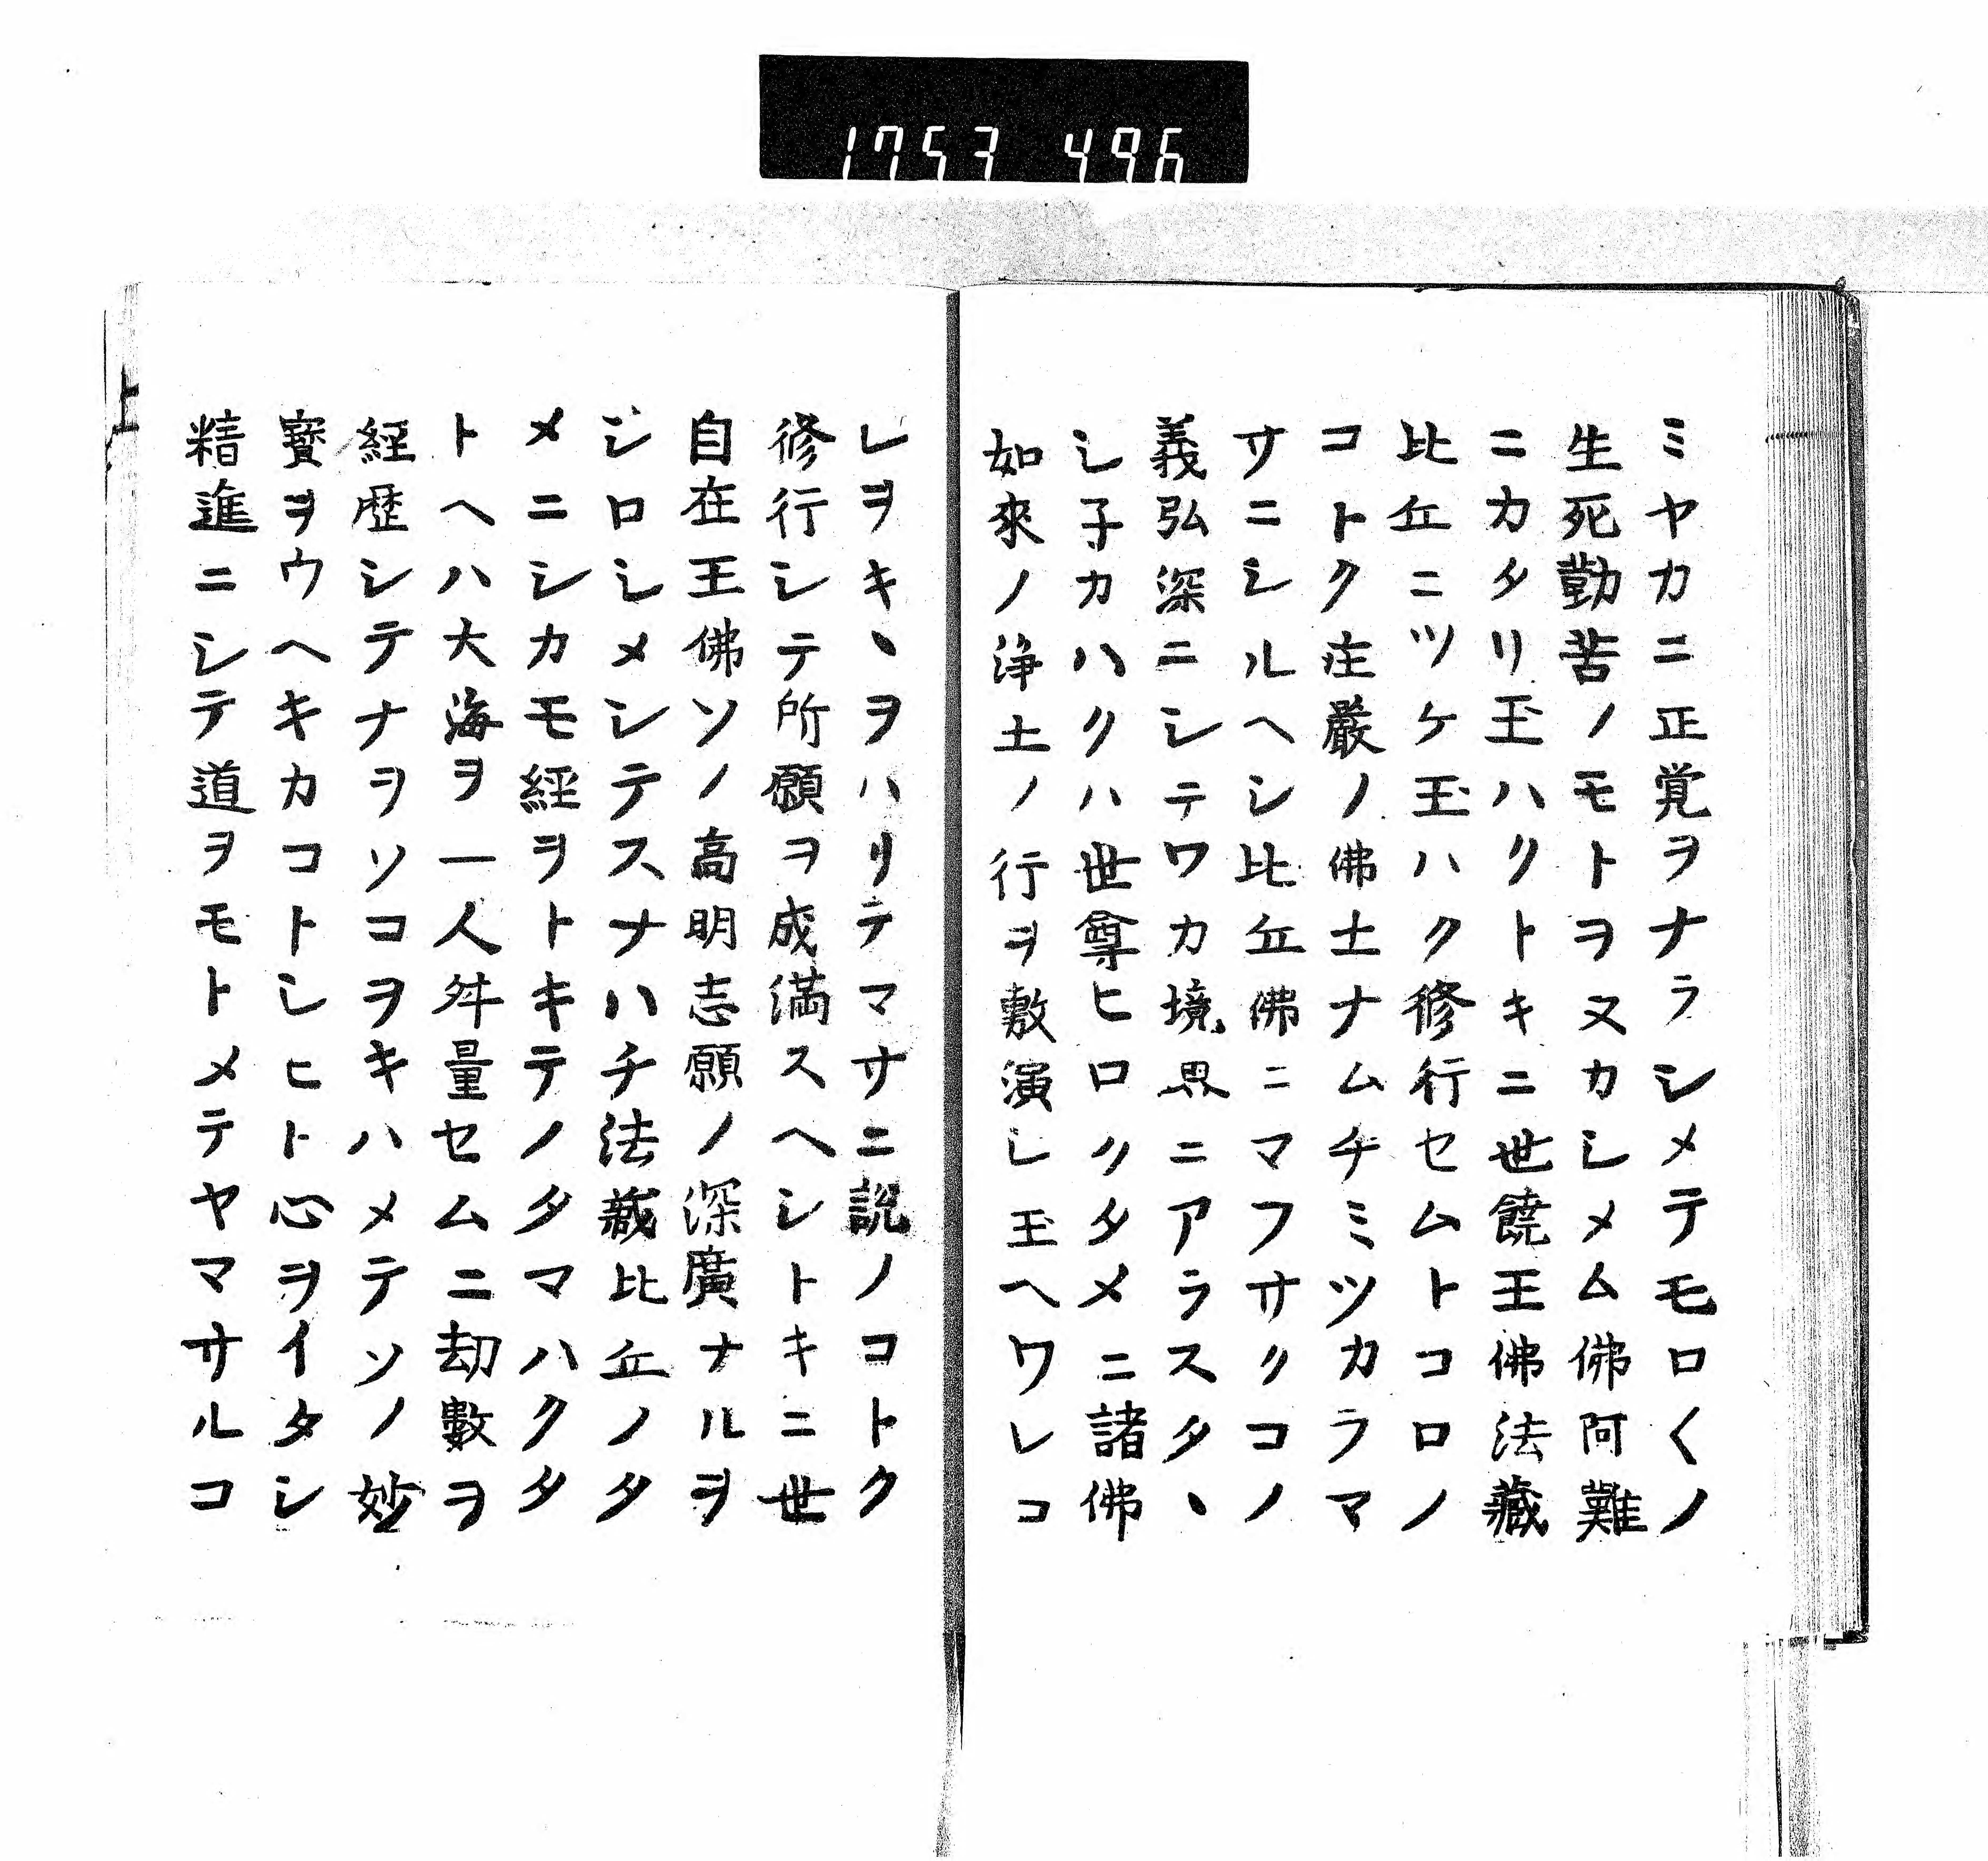 1753 496
ミヤカニ正覚ヲナラシメテモロ〱ノ
生死勤苦ノモトヲヌカシメム佛阿難
ニカタリ玉ハクトキニ世饒王佛法藏
比丘ニツケ玉ハク修行セムトコロノ
コトク庄嚴ノ佛土ナムチミツカラマ
サニシルヘシ比丘佛ニマフサクコノ
義弘深ニシテワカ境界ニアラスタヽ
シ子カハクハ世尊ヒロクタメニ諸佛
如來ノ浄土ノ行ヲ敷演シ玉ヘワレコ
レヲキヽヲハリテマサニ説ノコトク
修行シテ所願ヲ成満スヘシトキニ世
自在王佛ソノ高明志願ノ深廣ナルヲ
シロシメシテスナハチ法藏比丘ノタ
メニシカモ經ヲトキテノタマハクタ
トヘハ大海ヲ一人舛量セムニ劫數ヲ
経歴シテナヲソコヲキハメテソノ妙
寳ヲウヘキカコトシヒト心ヲイタシ
精進ニシテ道ヲモトメテヤマサルコ
上